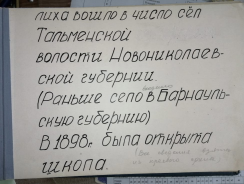 лиха вошло в число сёл
Тальменской
волости Новониколаев-
ской губернии.
(Раньше село в Барнауль-
скую губернию)
В 1898г. была открыта
школа.